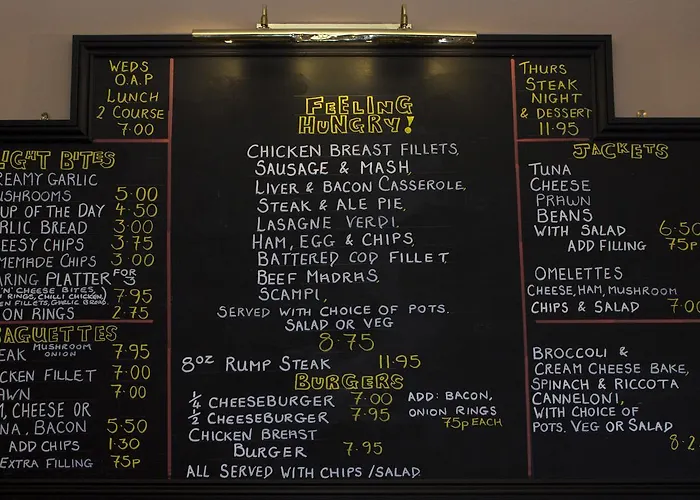 WEDS
O.A.P
LUNCH
2 COURSE
7.00
LIGHT BITES
CREAMY GARLIC
MUSHROOMS 5.00
SOUP OF THE DAY 4.50
GARLIC BREAD 3.00
CHEESY CHIPS 3.75
HOMEMADE CHIPS 3.00
SHARING PLATTER FOR 3
'N' CHEESE BITES
ONION RINGS, CHILLI CHICKEN,
CHICKEN FILLETS, GARLIC BREAD. 7.95
ONION RINGS 2.75
BAGUETTES
STEAK MUSHROOM ONION 7.95
CHICKEN FILLET 7.00
PRAWN 7.00
HAM, CHEESE OR
TUNA, BACON 5.50
ADD CHIPS 1.30
EXTRA FILLING 75p
FEELING
HUNGRY!
CHICKEN BREAST FILLETS,
SAUSAGE & MASH,
LIVER & BACON CASSEROLE,
STEAK & ALE PIE,
LASAGNE VERDI.
HAM, EGG & CHIPS,
BATTERED COD FILLET.
BEEF MADRAS.
SCAMPI,
SERVED WITH CHOICE OF POTS.
SALAD OR VEG
8.75
8OZ RUMP STEAK 11.95
BURGERS
1/4 CHEESEBURGER 7.00
1/2 CHEESEBURGER 7.95
ADD: BACON,
ONION RINGS
75p EACH
CHICKEN BREAST
BURGER 7.95
ALL SERVED WITH CHIPS/SALAD
THURS
STEAK
NIGHT
& DESSERT
11.95
JACKETS
TUNA
CHEESE
PRAWN
BEANS
WITH SALAD 6.50
ADD FILLING 75p
OMELETTES
CHEESE, HAM, MUSHROOM
CHIPS & SALAD 7.00
BROCCOLI &
CREAM CHEESE BAKE,
SPINACH & RICCOTA
CANNELONI,
WITH CHOICE OF
POTS. VEG OR SALAD
8.2